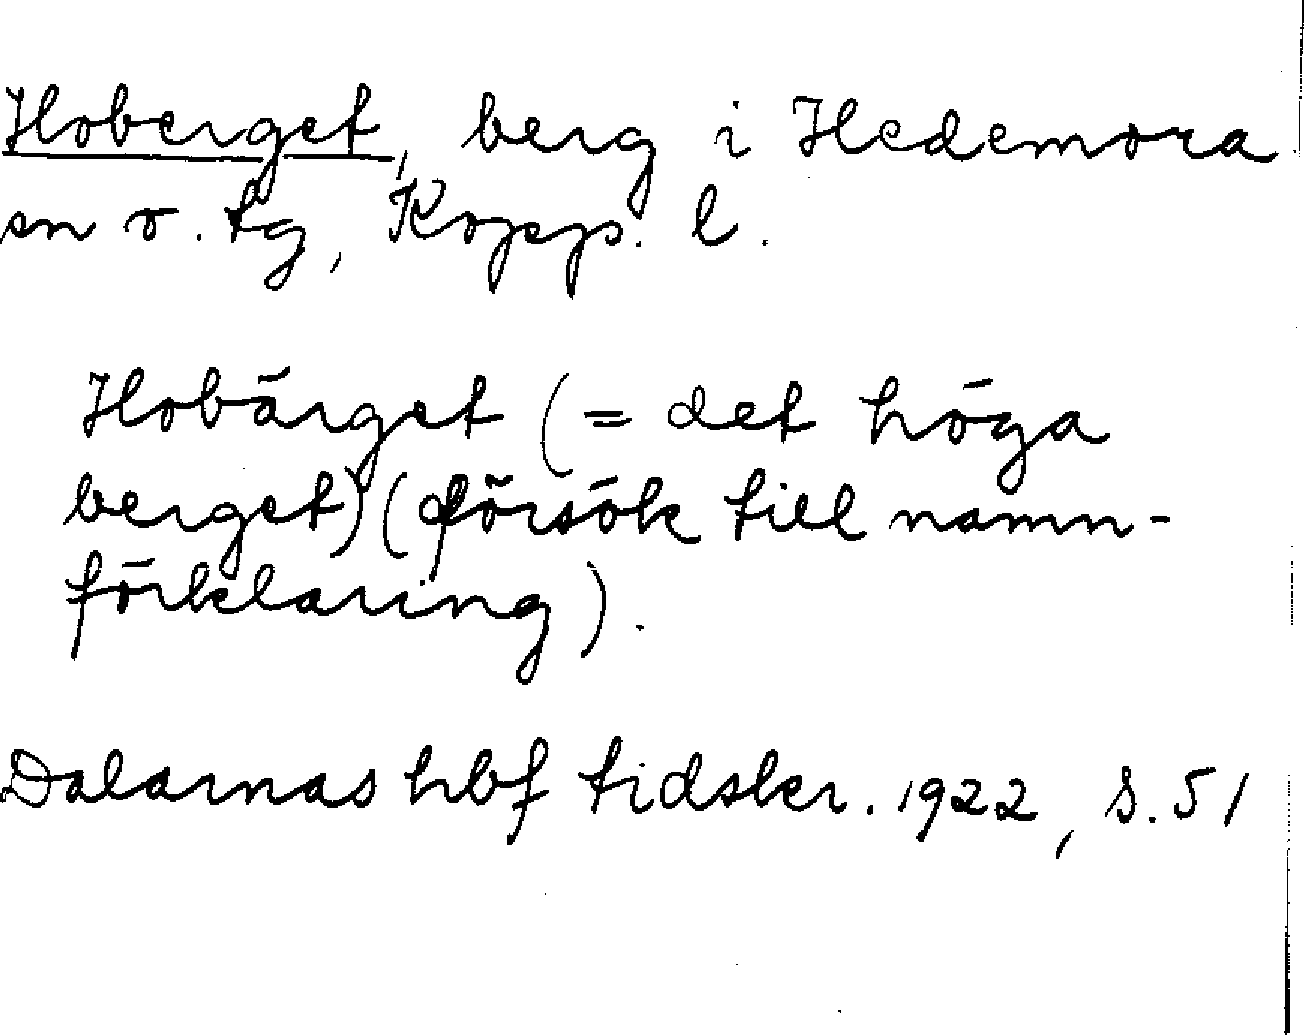 Hoberget, berg i Hedemora
sn o. tg, Kopp. l.
Hobärget (= det höga
berget) (försök till namn-
förklaring).
Dalarnas hbf tidskr. 1922, S. 51